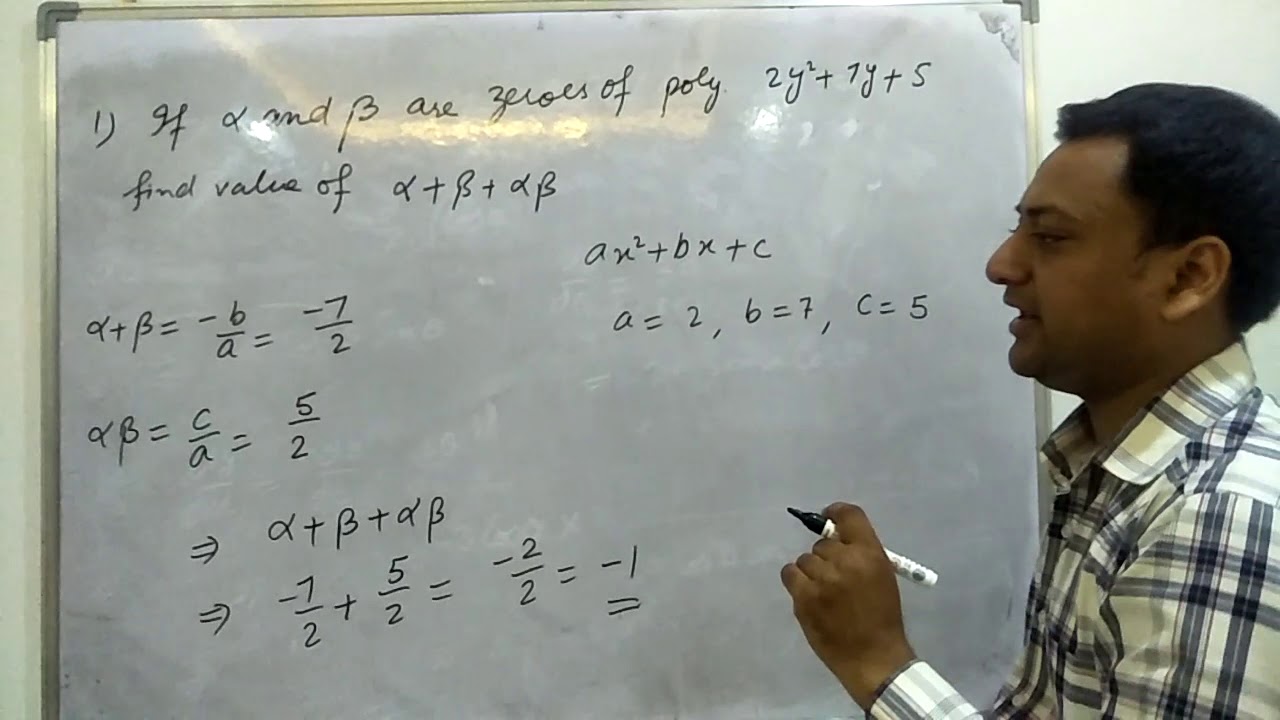 1) If α and β are zeroes of poly. 2y²+7y+5
find value of α+β+αβ
ax²+bx+c
a = 2, b=7, c=5
α+β = -b/a = -7/2
αβ = c/a = 5/2
⇒ α+β+αβ
⇒ -7/2 + 5/2 = -2/2 = -1